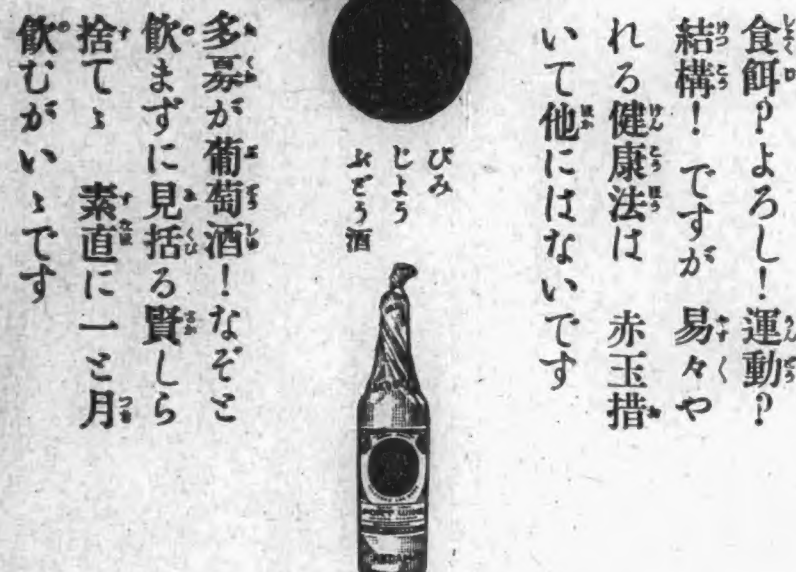 食餌？よろし！運動？
結構！ですが　易々や
れる健康法は　赤玉措
いて他にはないです
びみ
じよう
ぶどう酒
多寡が葡萄酒！なぞと
飲まずに見括る賢しら
捨てゝ　素直に一と月
飲むがいゝです
PORT WINE